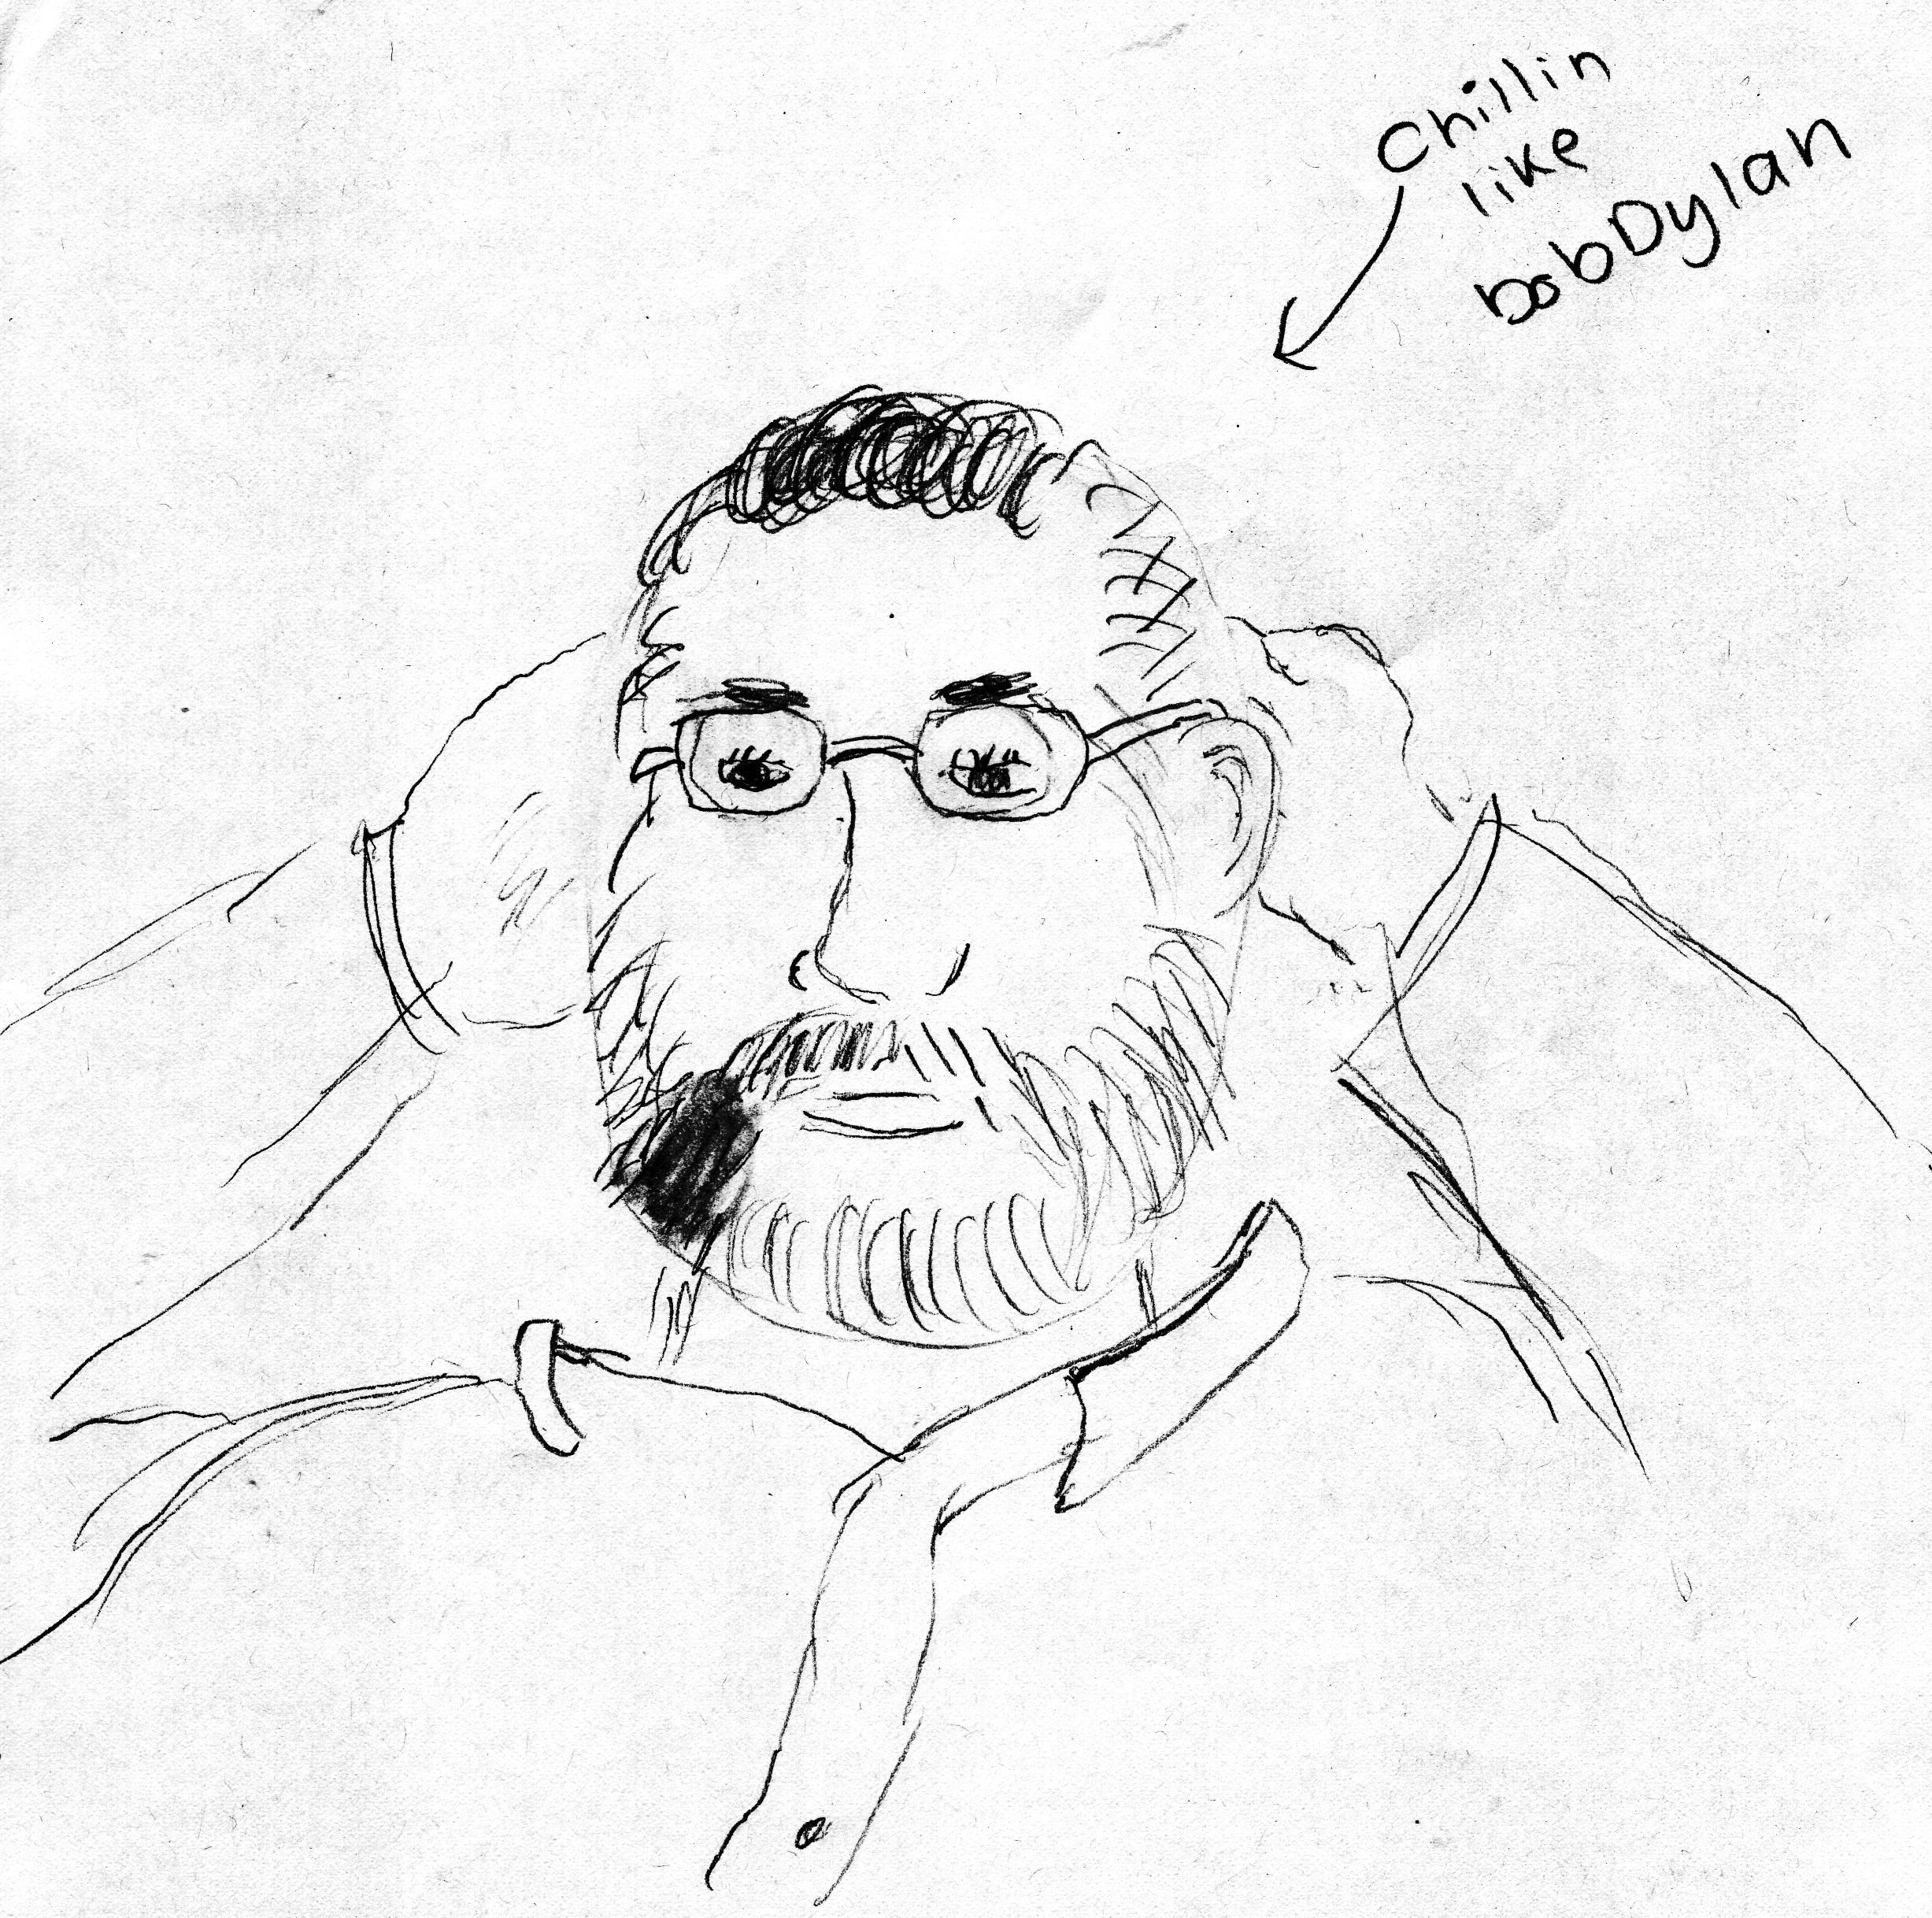 Chillin
like
bobDylan